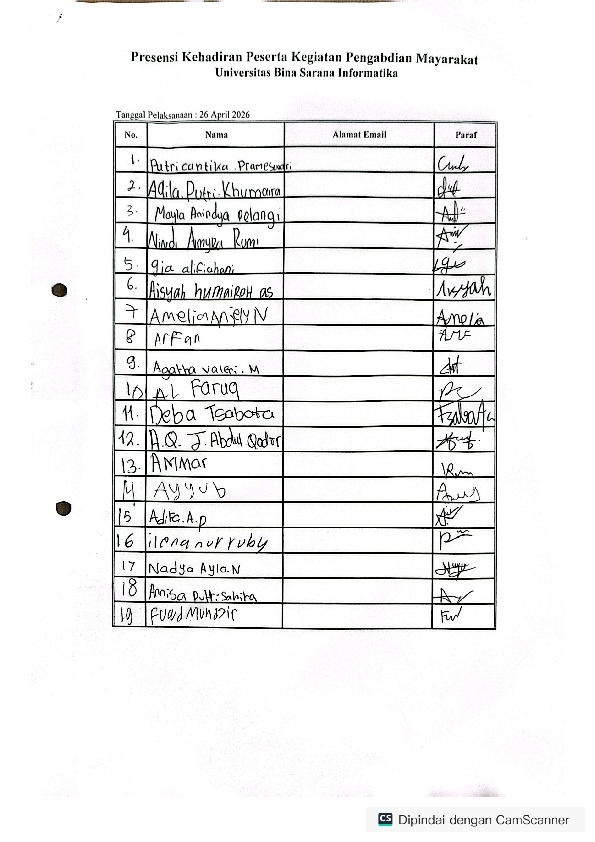 Presensi Kehadiran Peserta Kegiatan Pengabdian Mayarakat
Universitas Bina Sarana Informatika
Tanggal Pelaksanaan : 26 April 2026
No. Nama Alamat Email Paraf
1. Putri cantika. Prameswari
2. Aqila. Putri. Khumaira
3. Mayla Anindya Pelangi
4. Nindi Amyra Rumi
5. gia alifiahani
6. Aisyah humairoh as Aisyah
7 Amelia Anjely N Amelia
8 Arfan
9. Agatha Valeri. M
10 AL Faruq
11. Deba Tsabota
12. A.Q. J. Abdul Qodir
13. AMMar
14 Ayyub
15 Adita. A.p
16 ilena nur ruby
17 Nadya Ayla. N
18 Annisa Putri. Sabita
19 Fuad Mundzir
CS Dipindai dengan CamScanner